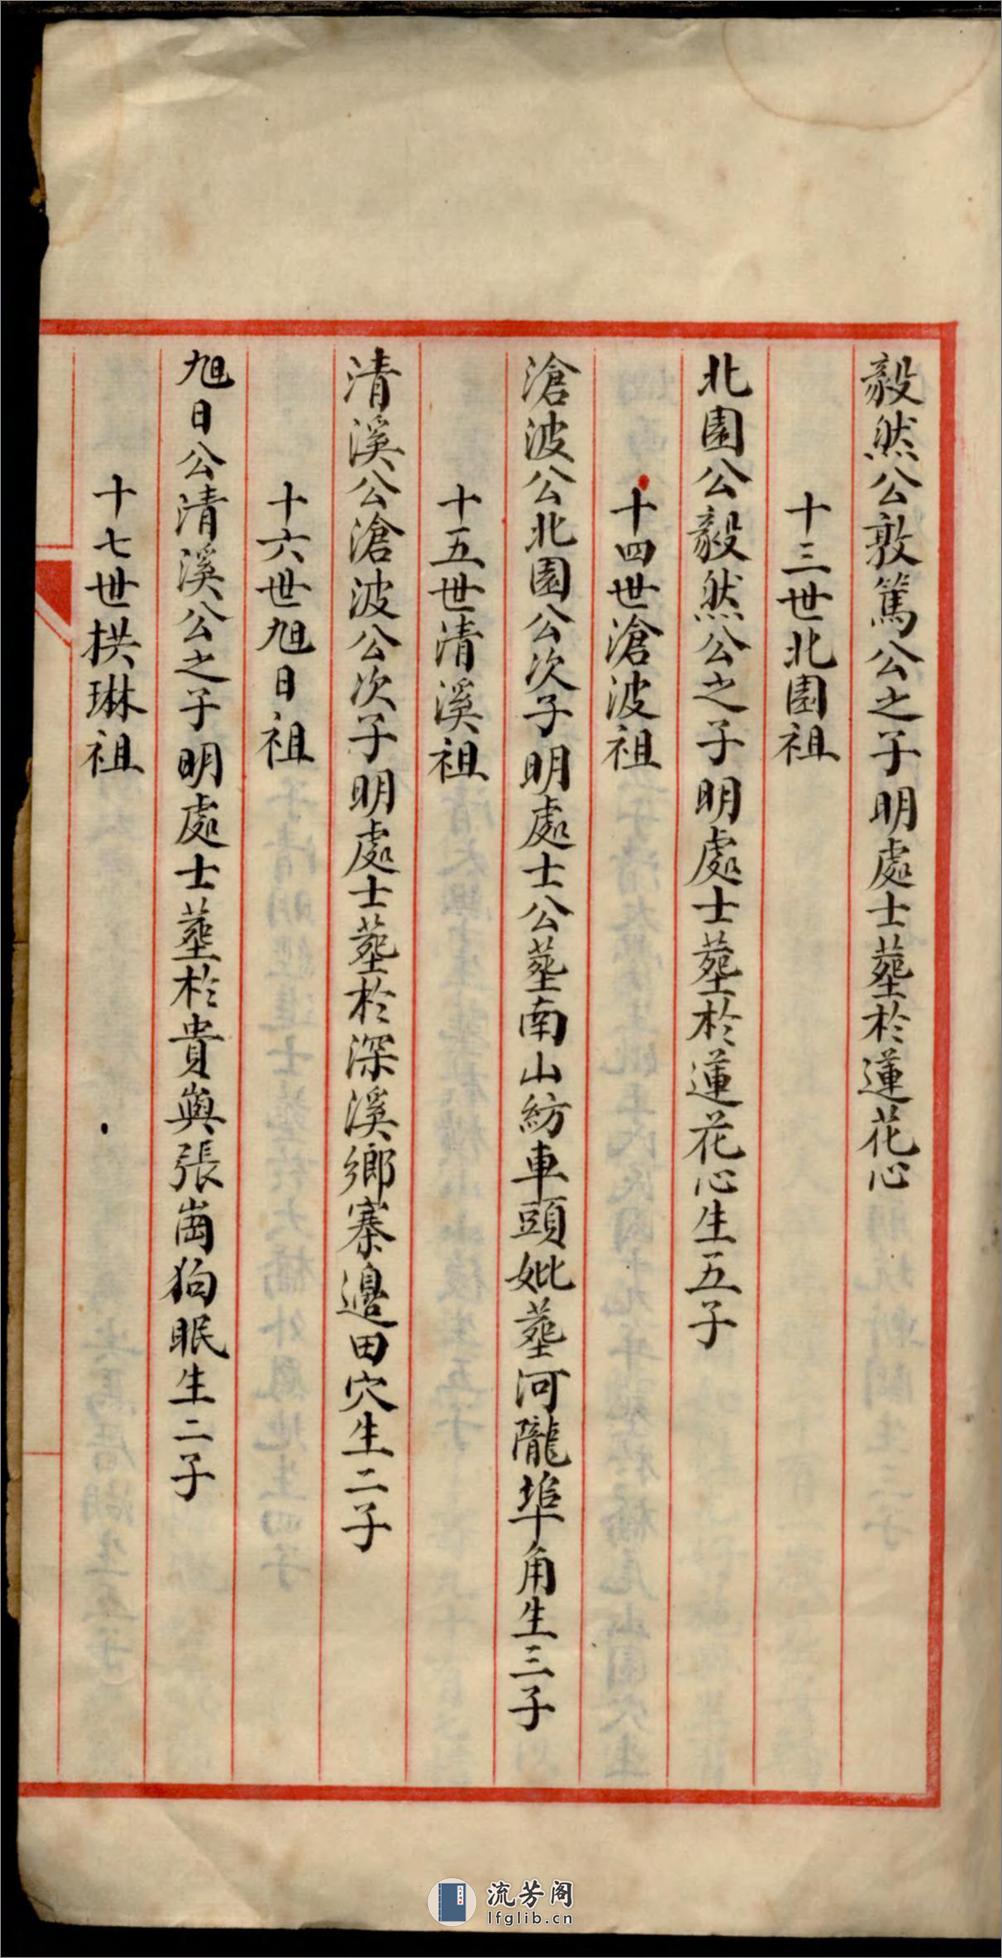 毅然公敦篤公之子明處士塟於蓮花心
十三世北園祖
北園公毅然公之子明處士塟於蓮花心生五子
十四世滄波祖
滄波公北園公次子明處士公塟南山紡車頭妣塟河隴埠角生三子
十五世清溪祖
清溪公滄波公次子明處士塟於深溪鄉寨邊田穴生二子
十六世旭日祖
旭日公清溪公之子明處士塟於貴嶼張崗狗眠生二子
十七世拱琳祖
流芳阁
lfglib.cn